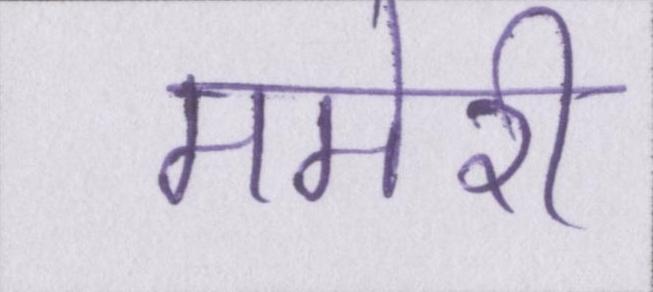 ममेरी